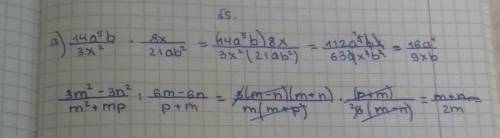 √5.
а) 14a⁵b/3x² · 8x/21ab² = (14a⁵b)8x/3x²(21ab²) = 112a⁵bx/63ax²b² = 16a⁴/9xb
3m²-3n²/m²+mp : 6m-6n/p+m = 3(m-n)(m+n)/m(m+p) · (p+m)/6(m-n) = m+n/2m